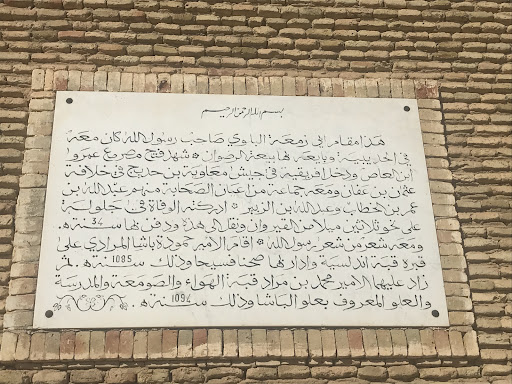 بسم الله الرحمن الرحيم
هذا مقام ابي زمعة البلوي صاحب رسول الله كان معه
في الحديبية وبايعه بها بيعة الرضوان * شهد فتح مصر مع عمرو
ابن العاص ودخل افريقية في جيش معاوية بن حديج في خلافة
عثمان بن عفان ومعه جماعة من اعيان الصحابة منهم عبد الله بن
عمر بن الخطاب وعبد الله بن الزبير * ادركته الوفاة في جلولة
على نحو ثلاثين ميلا من القيروان ونقل الى هذه ودفن بها سنة 34 ه.
ومعه شعر من شعر رسول الله * اقام الامير حمودة باشا المرادي على
قبره قبة اندلسية وادار لها صحنا فسيحا وذلك سنة 1085 ه. ثم
زاد عليها الامير محمد بن مراد قبة الهواء والصومعة والمدرسة
والعلو المعروف بعلو الباشا وذلك سنة 1094 ه.